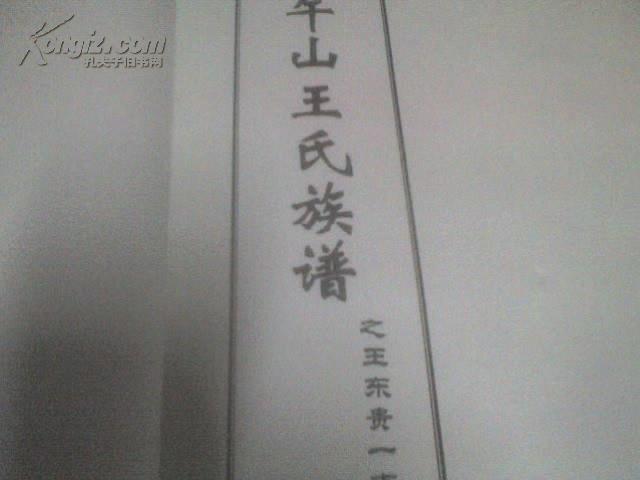 Kongfz.com
孔夫子旧书网
山王氏族谱
之王东贵一